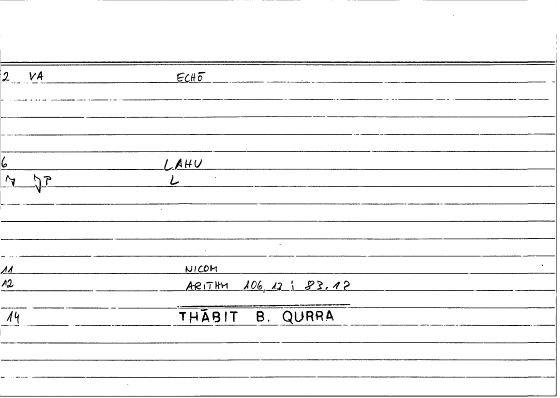 2 VA ECHŌ
6 LAHU
L
11 NICOM
12 ARITHM 106,12 ; 83.12
14 THĀBIT B. QURRA